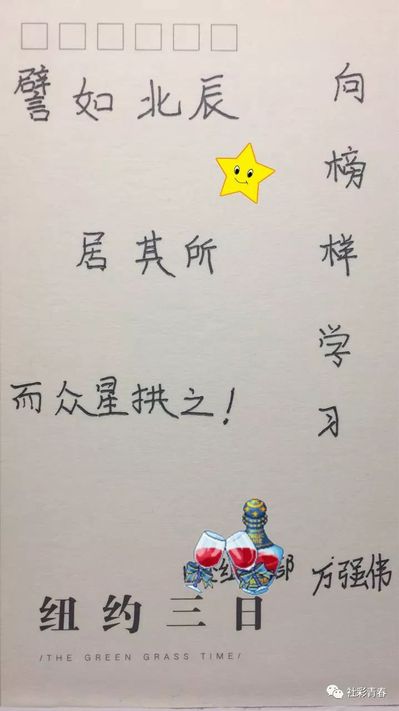 譬如北辰
居其所
而众星拱之！
向榜样学习
方强伟
纽约三日
/THE GREEN GRASS TIME/
社彩青春